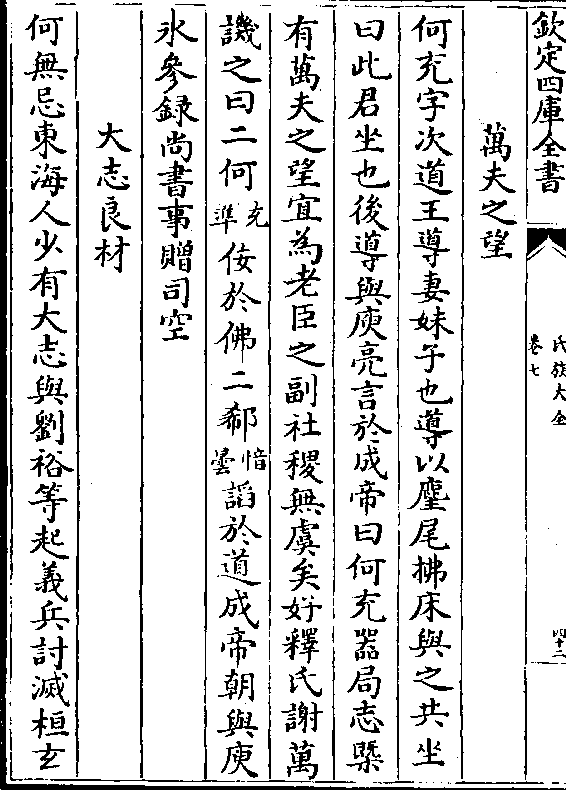 欽定四庫全書
氏族大全
卷七
四十二
萬夫之望
何充字次道王導妻妹子也導以麈尾拂床與之共坐
曰此君坐也後導與庾亮言於成帝曰何充器局志槩
有萬夫之望宜為老臣之副社稷無虞矣好釋氏謝萬
譏之曰二何充準佞於佛二郗愔曇謟於道成帝朝與庾
氷參録尚書事贈司空
大志良材
何無忌東海人少有大志與劉裕等起義兵討滅桓玄